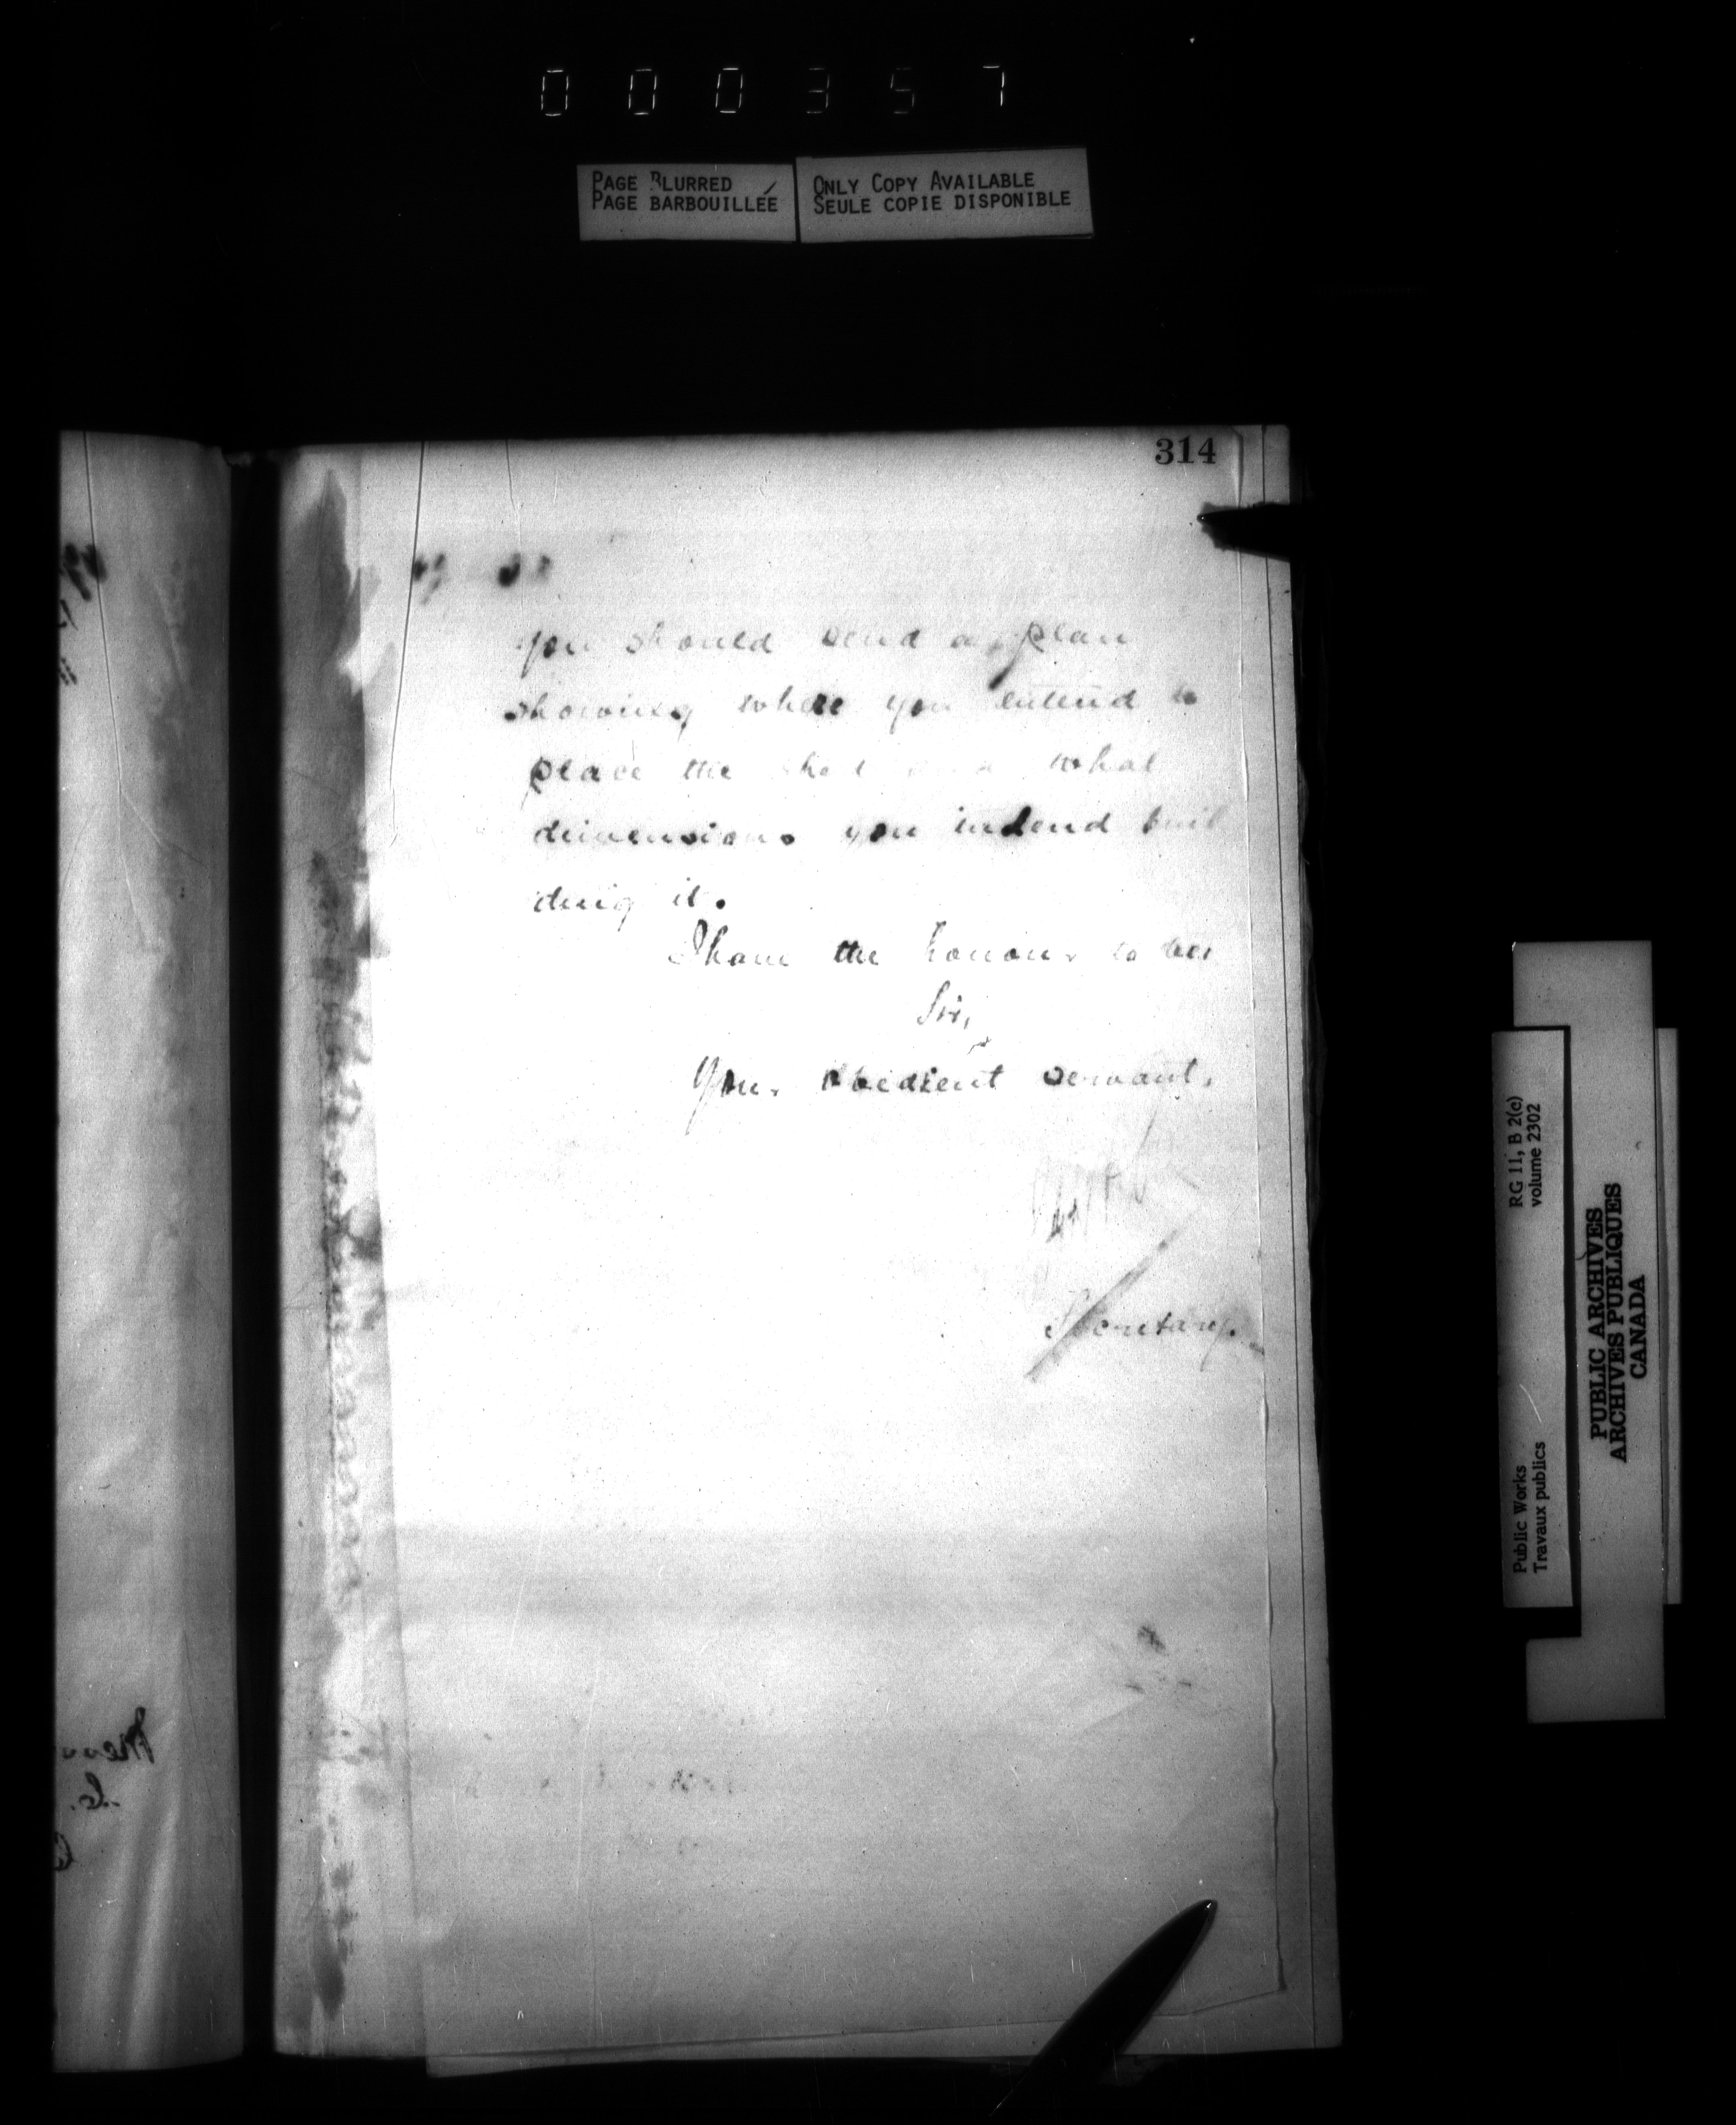 000357
PAGE BLURRED
PAGE BARBOUILLÉE
ONLY COPY AVAILABLE
SEULE COPIE DISPONIBLE
314
you should send a plan
showing where you intend to
place the shed and what
dimensions you intend buil
ding it.
I have the honour to be,
Sir,
Your obedient servant,
Secretary.
RG 11, B 2(c)
volume 2302
Public Works
Travaux publics
PUBLIC ARCHIVES
ARCHIVES PUBLIQUES
CANADA